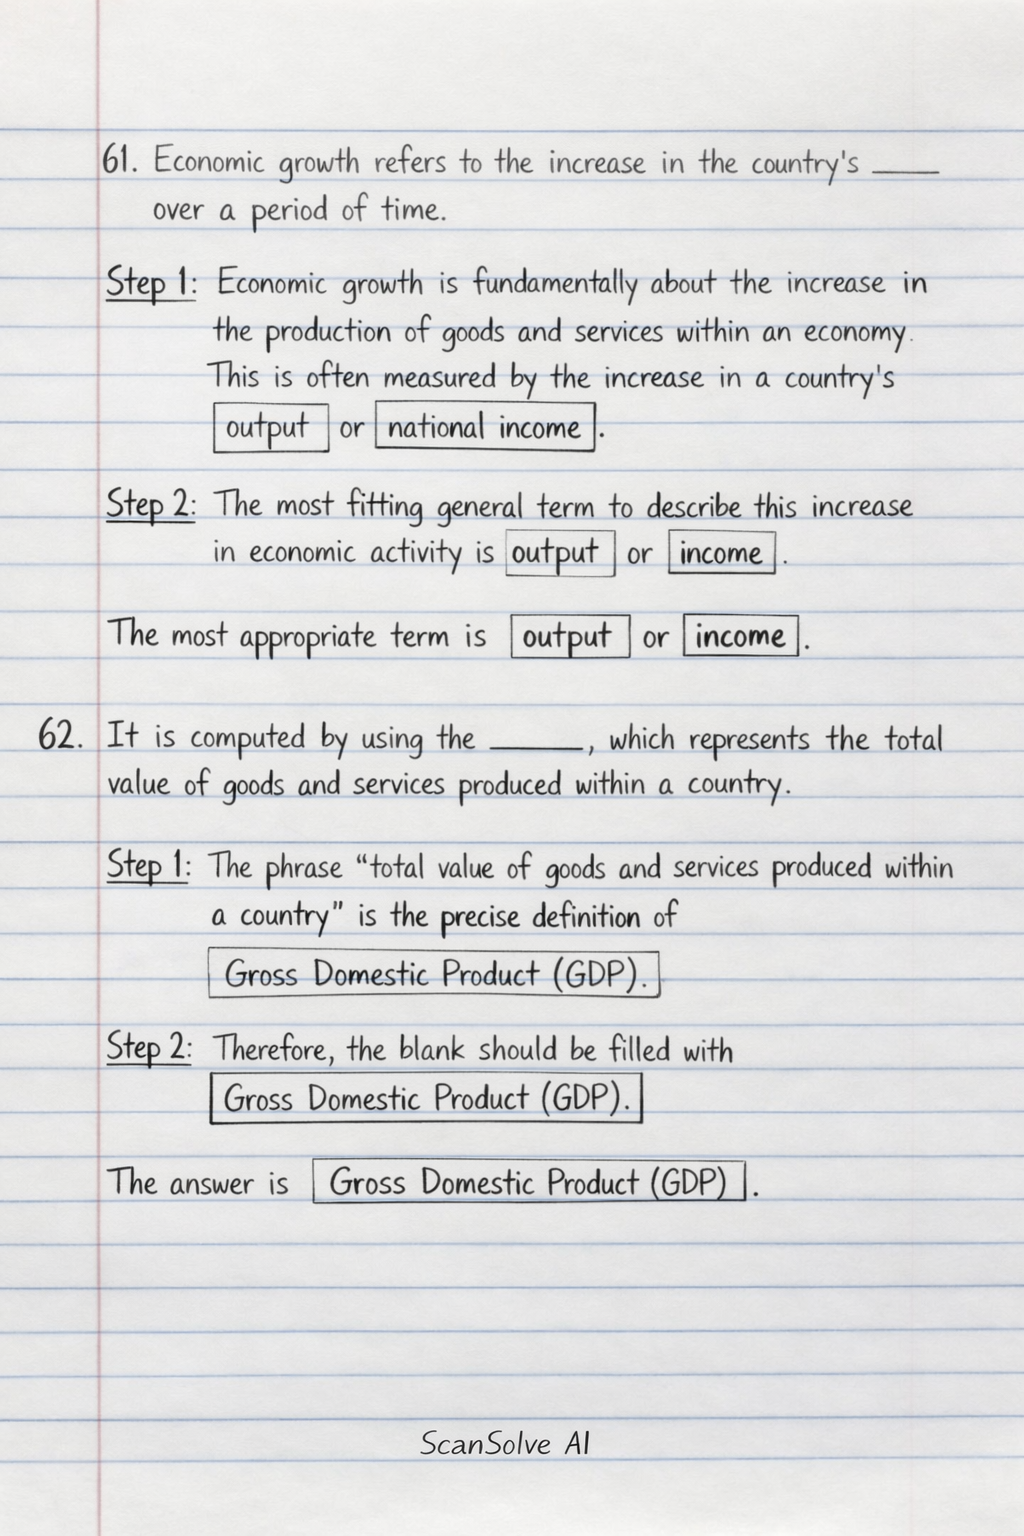 61. Economic growth refers to the increase in the country's ____
over a period of time.
Step 1: Economic growth is fundamentally about the increase in
the production of goods and services within an economy.
This is often measured by the increase in a country's
output or national income.
Step 2: The most fitting general term to describe this increase
in economic activity is output or income.
The most appropriate term is output or income.
62. It is computed by using the ____, which represents the total
value of goods and services produced within a country.
Step 1: The phrase “total value of goods and services produced within
a country” is the precise definition of
Gross Domestic Product (GDP).
Step 2: Therefore, the blank should be filled with
Gross Domestic Product (GDP).
The answer is Gross Domestic Product (GDP).
ScanSolve AI